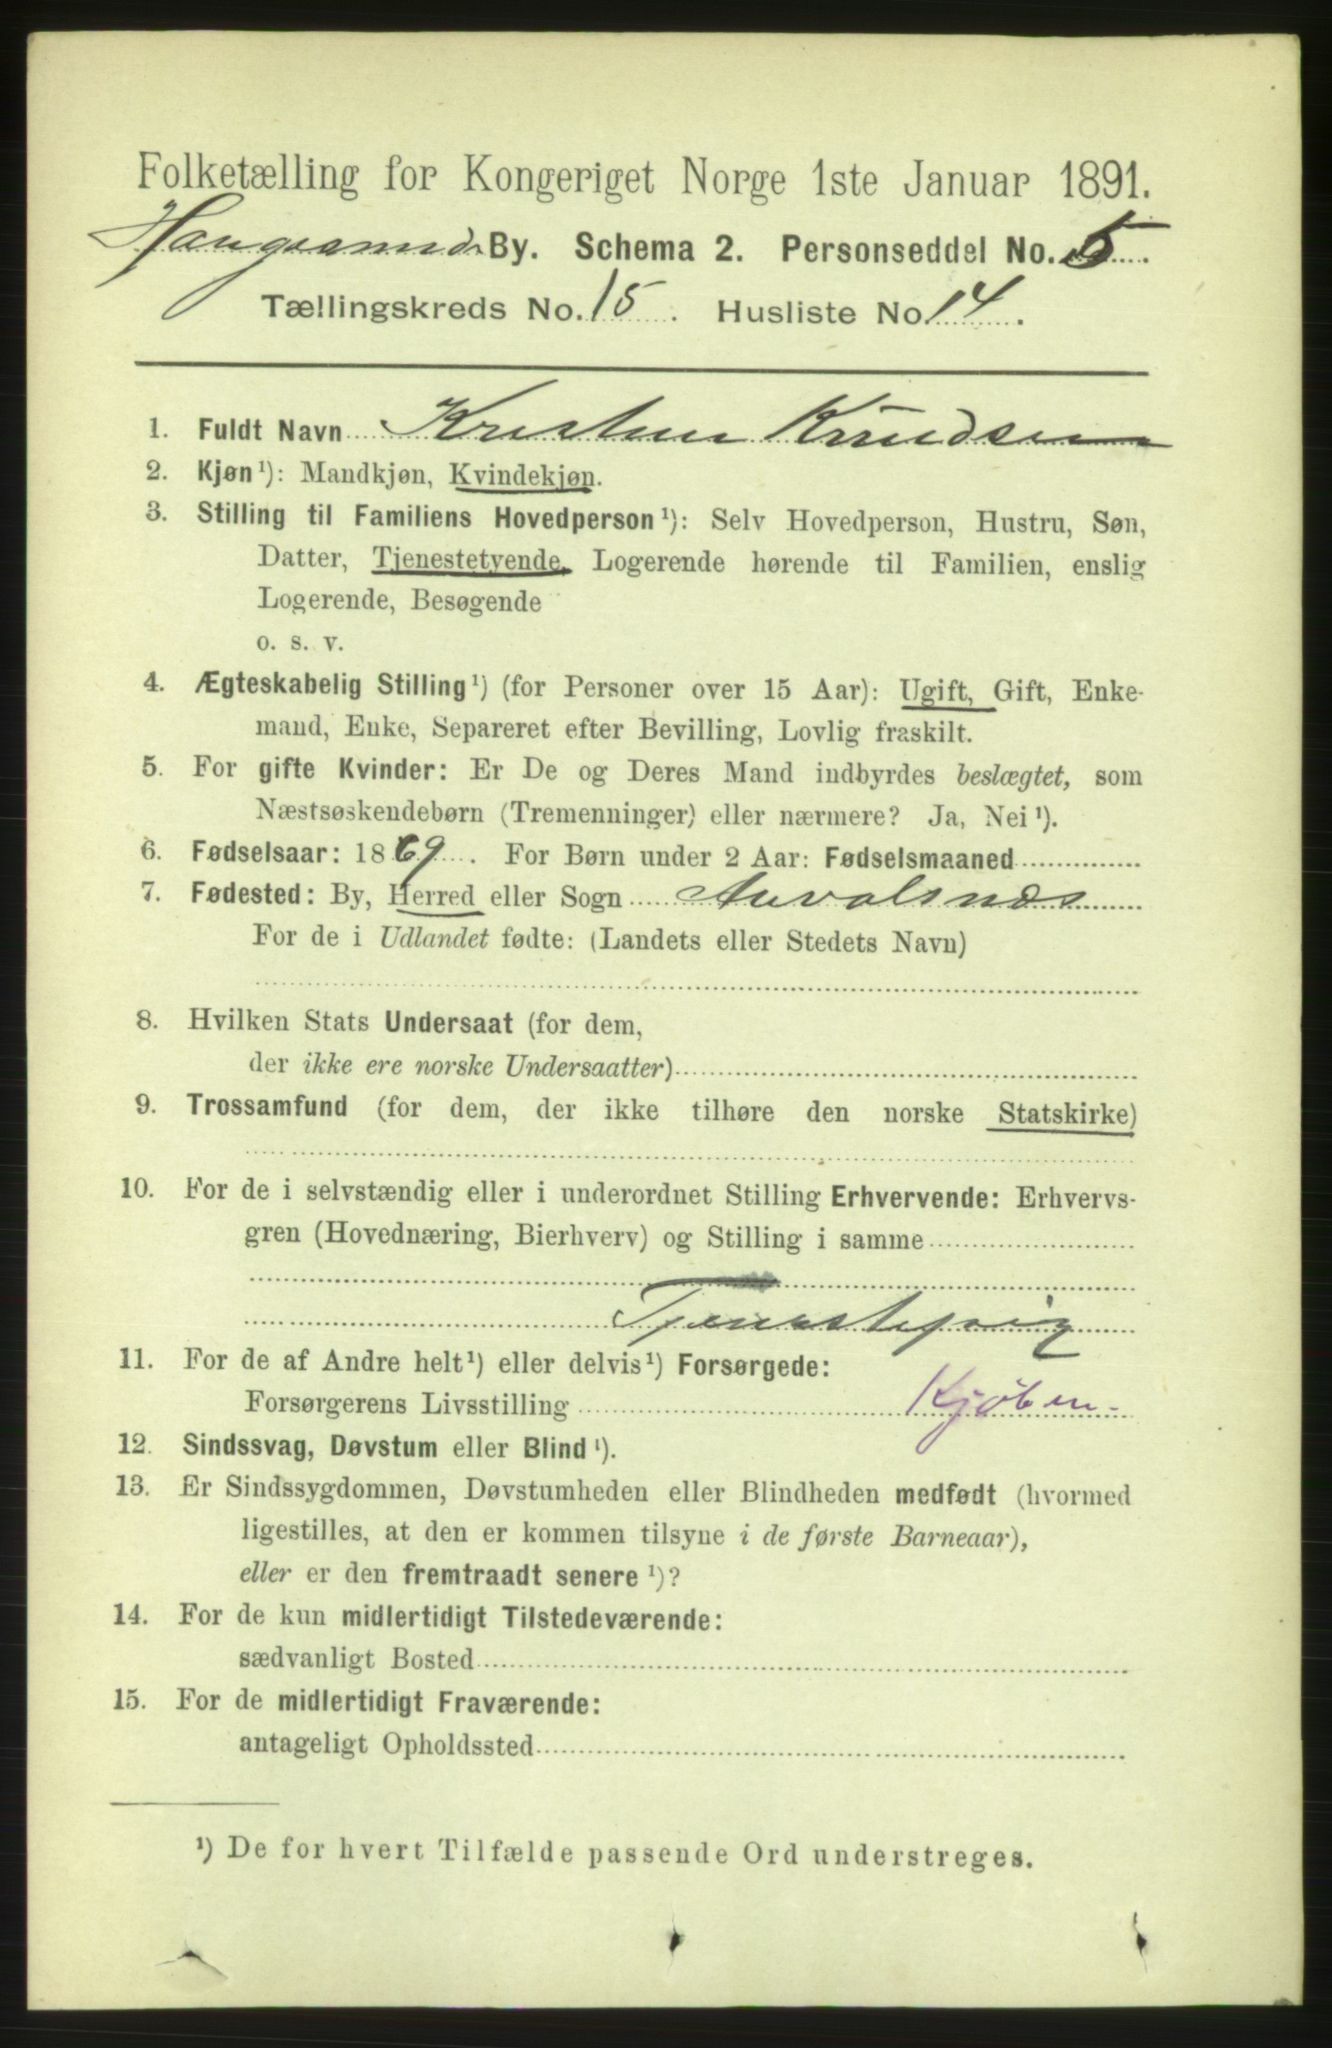 Folketælling for Kongeriget Norge 1ste Januar 1891.
Haugesund By. Schema 2. Personseddel No. 5.
Tællingskreds No. 15. Husliste No. 14.
1. Fuldt Navn Kristine Knudsen
2. Kjøn¹): Mandkjøn, Kvindekjøn.
3. Stilling til Familiens Hovedperson¹): Selv Hovedperson, Hustru, Søn,
Datter, Tjenestetyende, Logerende hørende til Familien, enslig
Logerende, Besøgende
o. s. v.
4. Ægteskabelig Stilling¹) (for Personer over 15 Aar): Ugift, Gift, Enke-
mand, Enke, Separeret efter Bevilling, Lovlig fraskilt.
5. For gifte Kvinder: Er De og Deres Mand indbyrdes beslægtet, som
Næstsøskendebørn (Tremenninger) eller nærmere? Ja, Nei¹).
6. Fødselsaar: 1869. For Børn under 2 Aar: Fødselsmaaned
7. Fødested: By, Herred eller Sogn Avalsnæs
For de i Udlandet fødte: (Landets eller Stedets Navn)
8. Hvilken Stats Undersaat (for dem,
der ikke ere norske Undersaatter)
9. Trossamfund (for dem, der ikke tilhøre den norske Statskirke)
10. For de i selvstændig eller i underordnet Stilling Erhvervende: Erhvervs-
gren (Hovednæring, Bierhverv) og Stilling i samme
Tjenestepige
11. For de af Andre helt¹) eller delvis¹) Forsørgede:
Forsørgerens Livsstilling Kjøbm.
12. Sindssvag, Døvstum eller Blind¹).
13. Er Sindssygdommen, Døvstumheden eller Blindheden medfødt (hvormed
ligestilles, at den er kommen tilsyne i de første Barneaar),
eller er den fremtraadt senere¹)?
14. For de kun midlertidigt Tilstedeværende:
sædvanligt Bosted
15. For de midlertidigt Fraværende:
antageligt Opholdssted
¹) De for hvert Tilfælde passende Ord understreges.